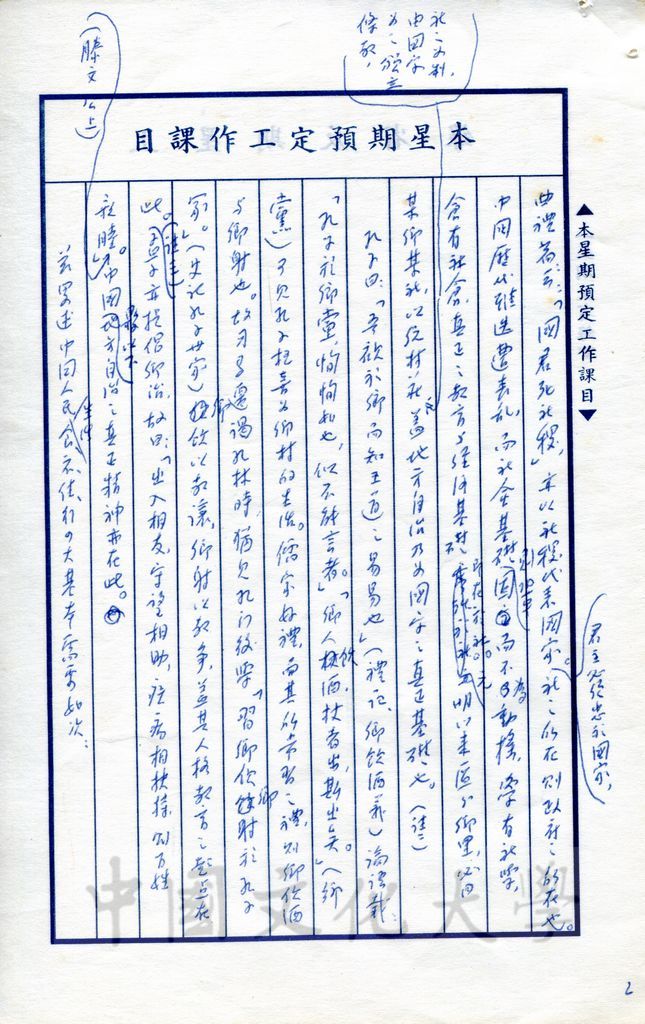 本星期預定工作課目
▲本星期預定工作課目▼
曲禮篇云:「國君死社稷,」亦以社稷代表國家。社之所在則政府之所在也。
君主必須忠於國家,
中國歷代雖迭遭喪亂,而社會基礎則固而不為動搖,學有社學,
倉有社倉,真正之教育與經濟基礎,即在於社。元明以來區分鄉里,必曰
社之文制,由國家為之頒立條款,
某鄉某社,以統村莊,蓋地方自治乃為國家之真正基礎也。(註二)
孔子曰:「吾欲於鄉而知王道之易易也」(禮記、鄉飲酒義)論語載:
「孔子於鄉黨,恂恂如也,似不能言者。」「鄉人飲酒,杖者出,斯出矣。」(鄉
黨)可見孔子極喜為鄉村的生活。儒家好禮,而其所常習之禮,則鄉飲酒
與鄉射也。故司馬遷謁孔林時,猶見孔門後學「習鄉飲鄉射於孔子
冢。」(史記孔子世家)鄉飲以教讓,鄉射以教爭,蓋其人格教育之起點在
此。(註三)孟子亦提倡鄉治,故曰:「出入相友,守望相助,疾病相扶持,則百姓
親睦。」中國地方自治之真正精神亦在此。
(滕文公上)
茲略述中國人民食衣住行四大基本需要如次:
中國文化大學
2